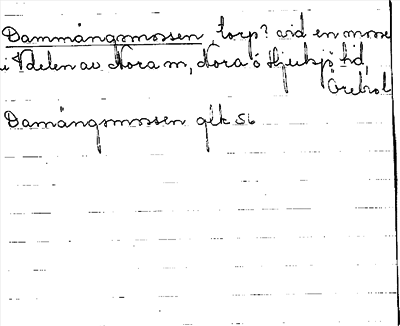 Dammångsmossen, torp? vid en mosse
i V delen av Nora m, Nora o Hjulsjö tid,
Örebro l
Damångsmossen glk 56